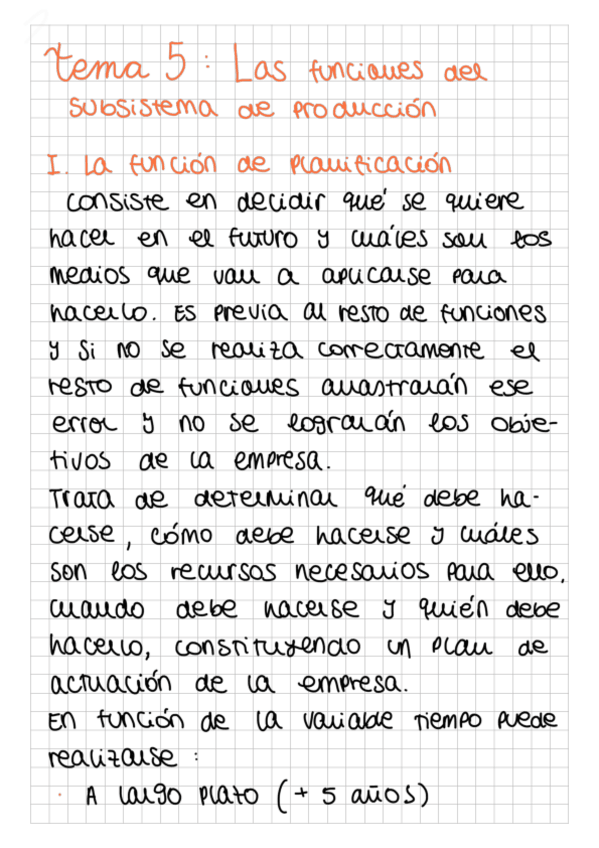 Tema 5: Las funciones del
subsistema de producción
I. La función de planificación
Consiste en decidir qué se quiere
hacer en el futuro y cuáles son los
medios que van a aplicarse para
hacerlo. Es previa al resto de funciones
y si no se realiza correctamente el
resto de funciones arrastrarán ese
error y no se lograrán los obje-
tivos de la empresa.
Trata de determinar qué debe ha-
cerse, cómo debe hacerse y cuáles
son los recursos necesarios para ello,
cuando debe hacerse y quién debe
hacerlo, constituyendo un plan de
actuación de la empresa.
En función de la variable tiempo puede
realizarse :
· A largo plazo (+ 5 años)